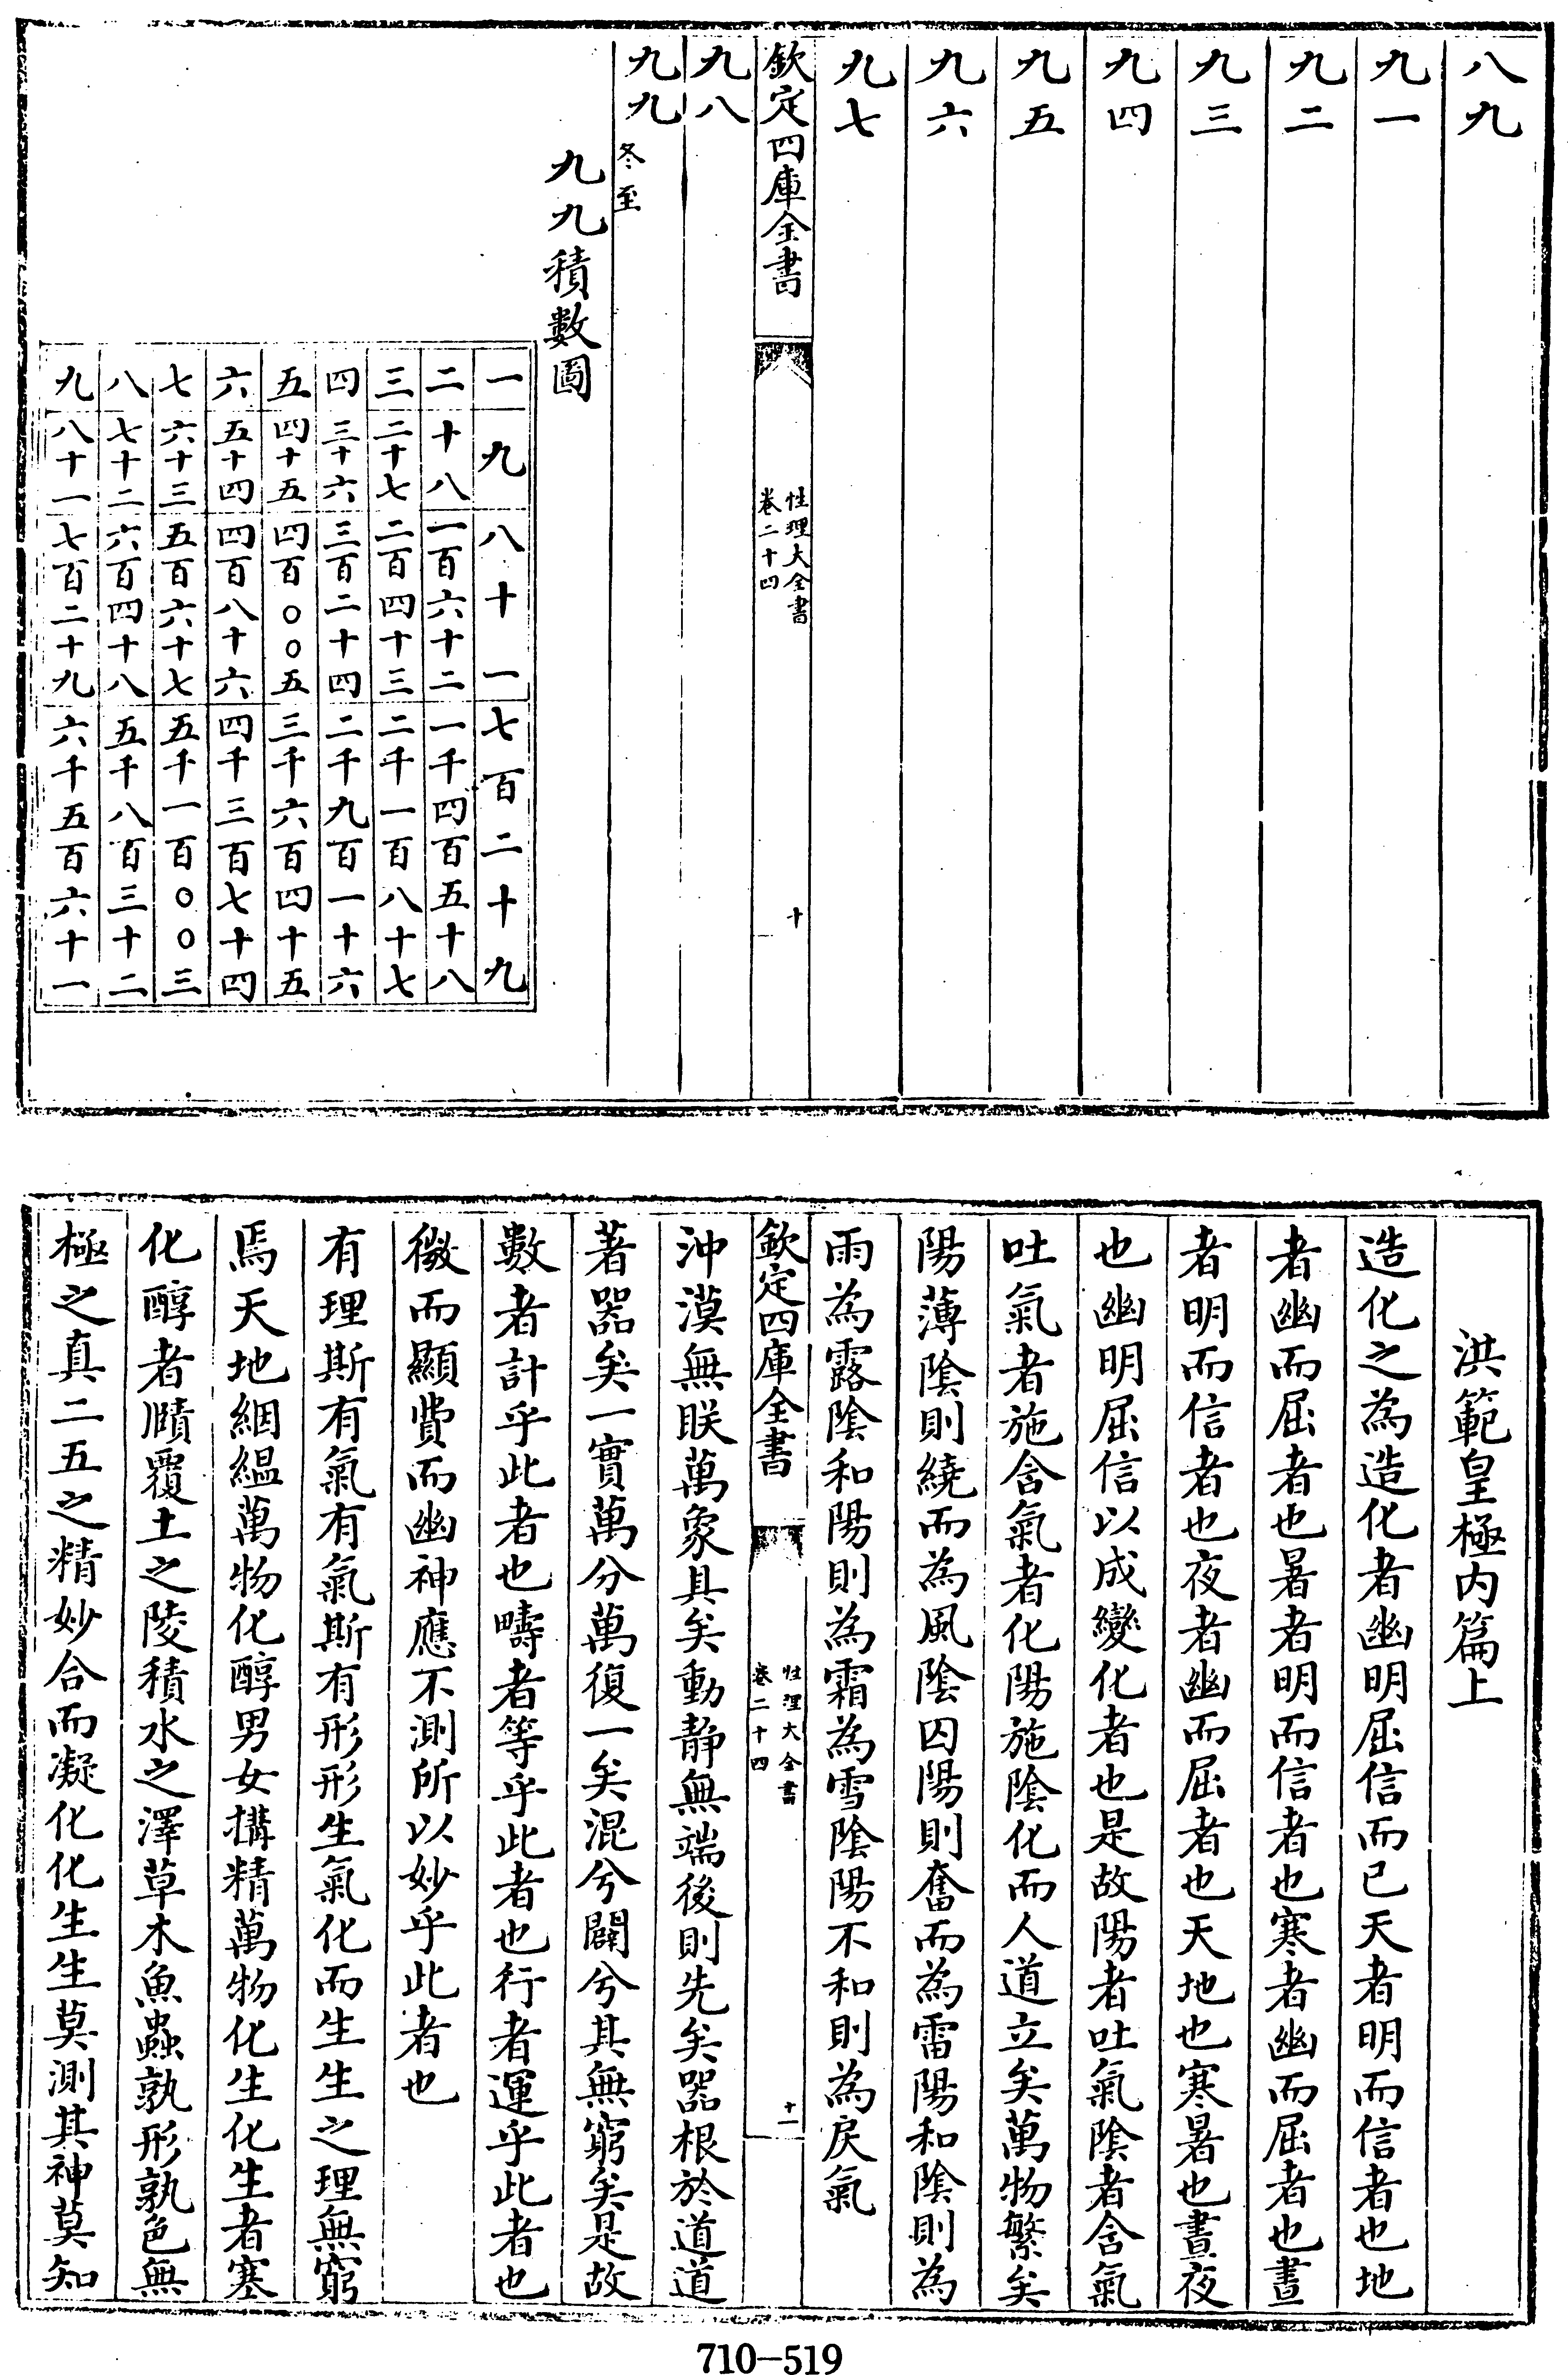 八九
九一
九二
九三
九四
九五
九六
九七
欽定四庫全書
性理大全書
卷二十四
十
九八
九九 冬至
九九積數圖
一 九 八十一 七百二十九
二 十八 一百六十二 一千四百五十八
三 二十七 二百四十三 二千一百八十七
四 三十六 三百二十四 二千九百一十六
五 四十五 四百〇〇五 三千六百四十五
六 五十四 四百八十六 四千三百七十四
七 六十三 五百六十七 五千一百〇〇三
八 七十二 六百四十八 五千八百三十二
九 八十一 七百二十九 六千五百六十一
洪範皇極內篇上
造化之為造化者幽明屈信而已天者明而信者也地
者幽而屈者也暑者明而信者也寒者幽而屈者也晝
者明而信者也夜者幽而屈者也天地也寒暑也晝夜
也幽明屈信以成變化者也是故陽者吐氣陰者含氣
吐氣者施含氣者化陽施陰化而人道立矣萬物繁矣
陽薄陰則繞而為風陰囚陽則奮而為雷陽和陰則為
雨為露陰和陽則為霜為雪陰陽不和則為戾氣
欽定四庫全書
性理大全書
卷二十四
十一
沖漠無眹萬象具矣動靜無端後則先矣器根於道道
著器矣一實萬分萬復一矣混兮闢兮其無窮矣是故
數者計乎此者也疇者等乎此者也行者運乎此者也
微而顯費而幽神應不測所以妙乎此者也
有理斯有氣有氣斯有形形生氣化而生生之理無窮
焉天地絪縕萬物化醇男女搆精萬物化生化生者塞
化醇者賾覆土之陵積水之澤草木魚蟲孰形孰色無
極之真二五之精妙合而凝化化生生莫測其神莫知
710-519